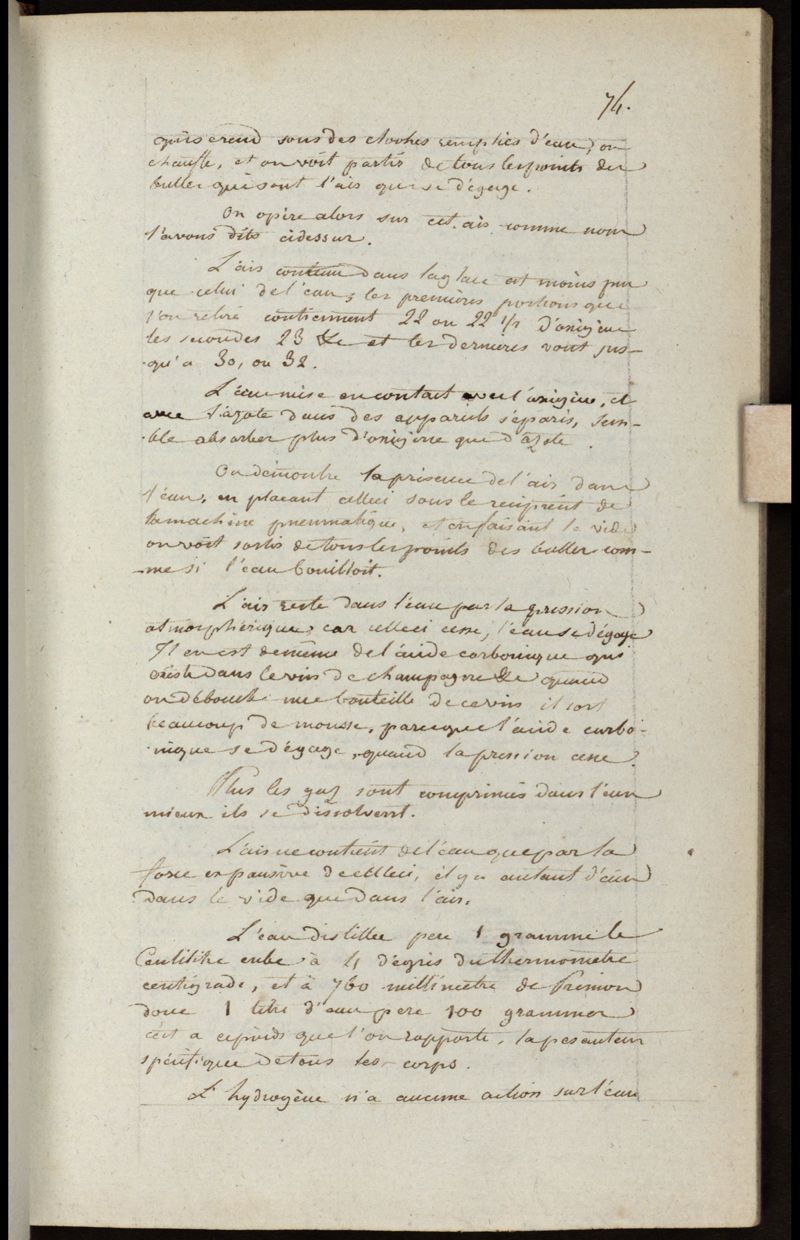 74.
qui se rend sous des cloches remplies d'eau, on
chauffe, et on voit partir de tous les points des
buller qui sont l'air qui se dégage.
On opère alors sur cet air comme nous
l'avons dits cidessur.
L'air contenu dans la glace est moins pur
que celui de l'eau; les premieres portions que
l'on retire contiennent 22 ou 22 1/2 d'oxigene
les secondes 23 &c et les dernieres vont jus-
qu'a 30, ou 32.
L'eau mise en contact avec l'oxigène, et
avec l'azote dans des appareils séparés, sem-
ble absorber plus d'oxigene que d'azote.
On démontre la présence de l'air dans
l'eau, en placant celleci sous le recipient de
la machine pneumatique, et en faisant le vide
on voit sortir de tous les points des buller com-
me si l'eau bouilloit.
L'air reste dans l'eau par la pression
atmosphérique, car celleci cesse, l'eau se dégage
Il en est de même de l'acide carbonique qui
existe dans le vin de champagne &c quand
on débouche une bouteille de ce vin il sort
beaucoup de mousse, parceque l'acide carbo-
nique se dégage, quand la pression cesse.
Plus les gaz sont comprimés dans l'eau
mieux ils se dissolvent.
L'air ne contient de l'eau que par la
force expansive de celleci, il y a autant d'eau
dans le vide que dans l'air.
L'eau distillée pese 1 gramme le
Centilitre cube à 4 dégrés du thermometre
centigrade, et à 760 millimetre de Pression
donc 1 litre d'eau pese 100 grammes
c'est a ce poids que l'on rapporte, la pesanteur
spécifique de tous les corps.
L'hydrogène n'a aucune action sur l'eau